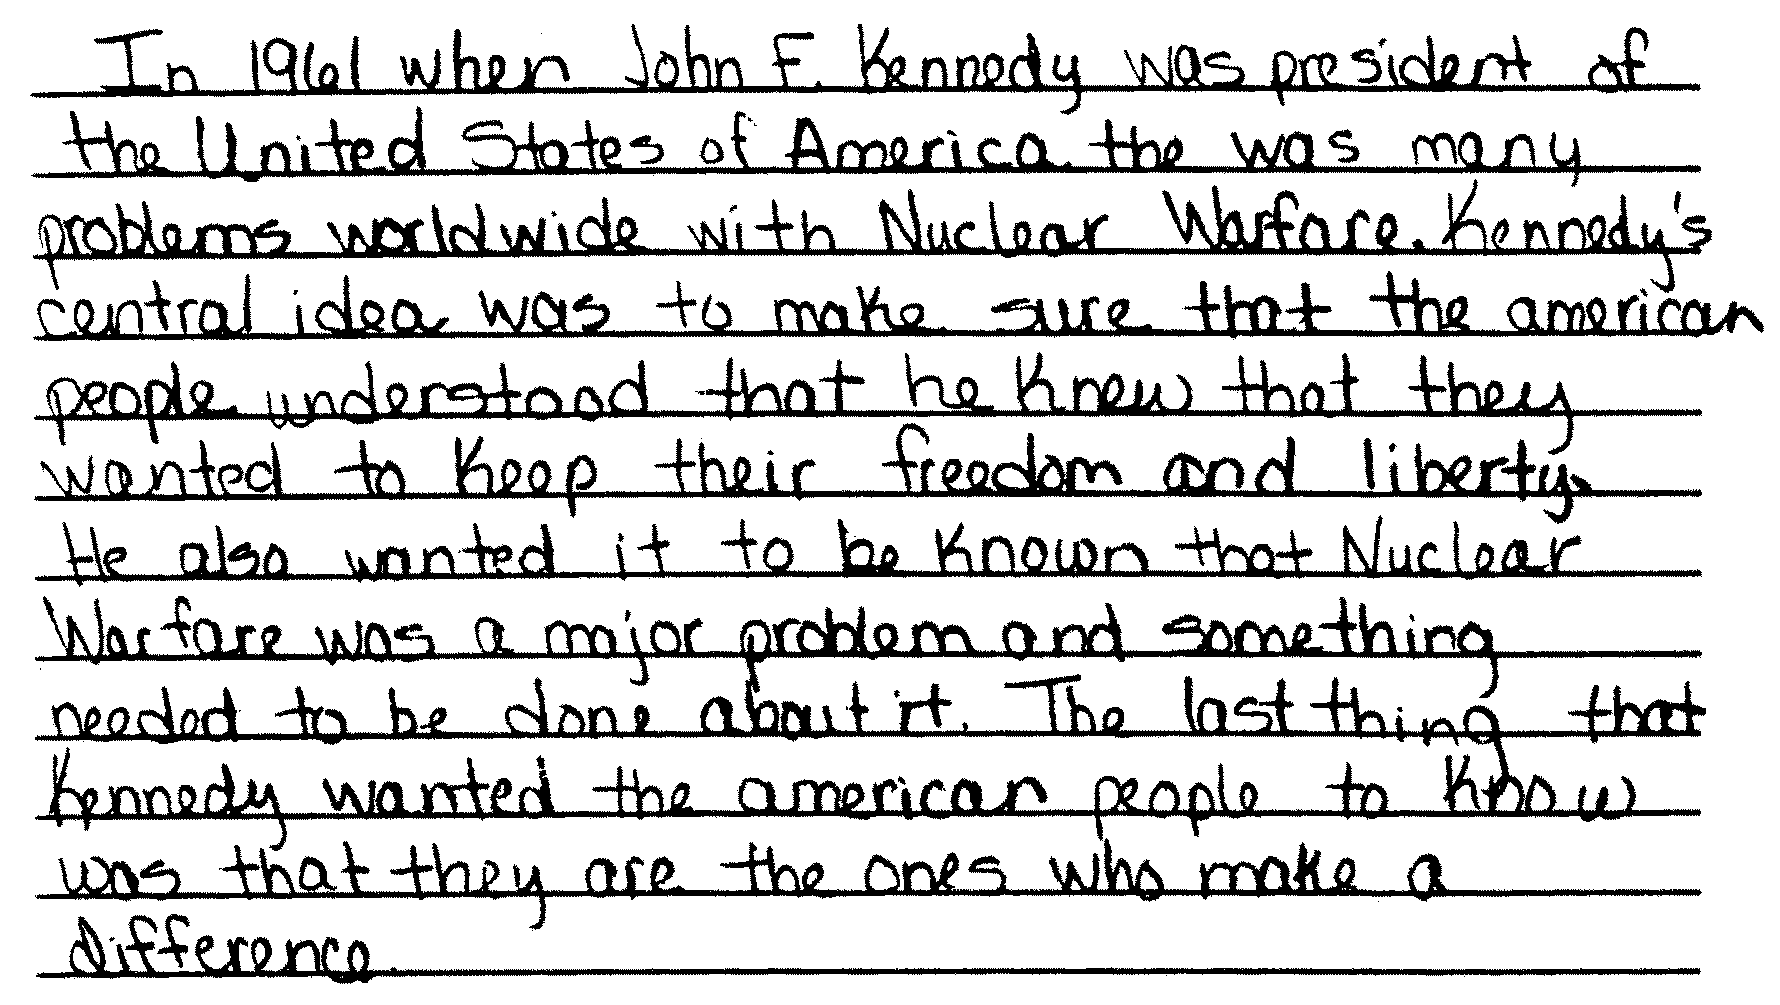 In 1961 when John F. Kennedy was president of
the United States of America the was many
problems worldwide with Nuclear Warfare. Kennedy's
central idea was to make sure that the american
people understood that he knew that they
wanted to keep their freedom and liberty.
He also wanted it to be known that Nuclear
Warfare was a major problem and something
needed to be done about it. The last thing that
Kennedy wanted the american people to know
was that they are the ones who make a
difference.